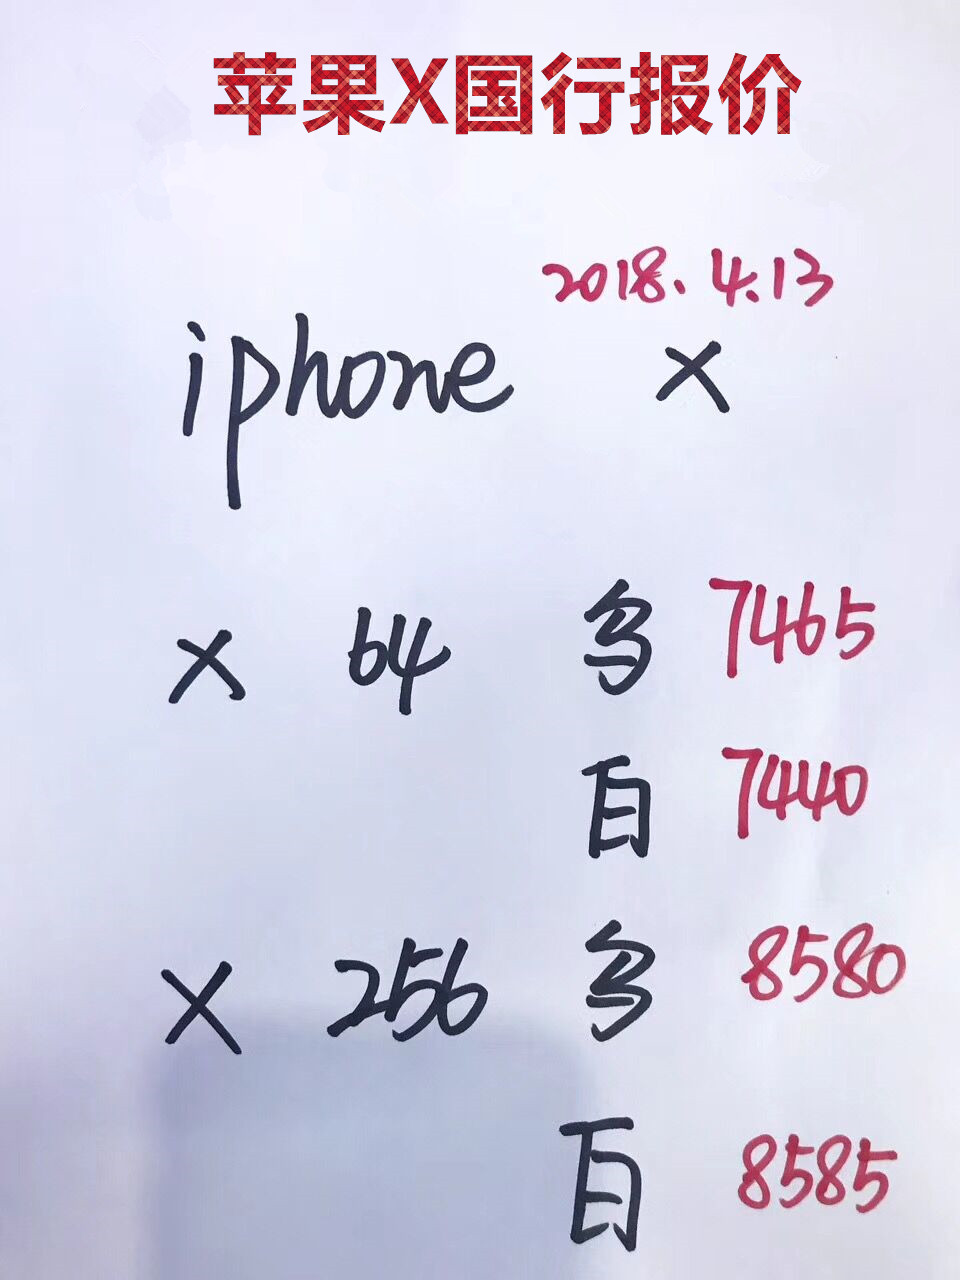 苹果X国行报价
2018.4.13
iphone X
X 64 乌 7465
百 7440
X 256 乌 8580
百 8585